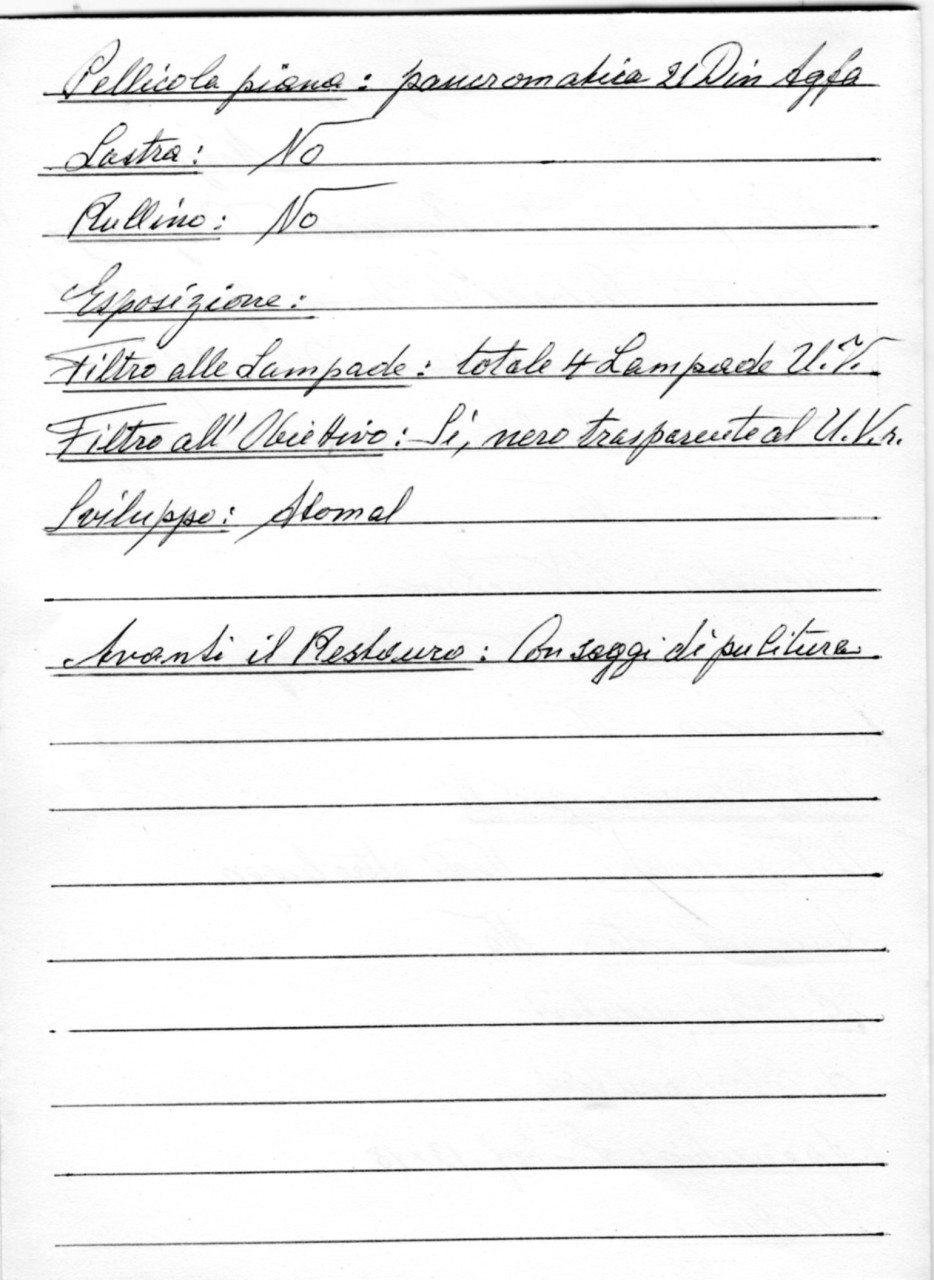 Pellicola piana: pancromatica 21 Din Agfa
Lastra: No
Rullino: No
Esposizione:
Filtro alle Lampade: totale 4 Lampade U.V.
Filtro all'Obiettivo: Sí, nero trasparente al U.V.r.
Sviluppo: Atomal
Avanti il Restauro: Con saggi di pulitura